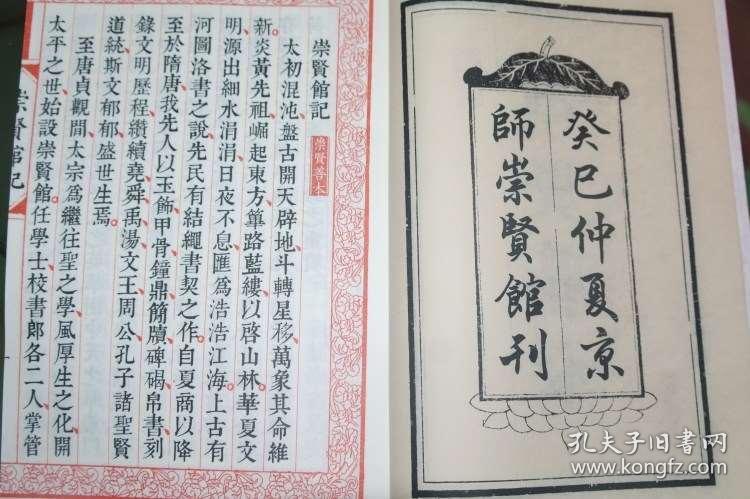 癸巳仲夏京
師崇賢館刊
崇賢館記
崇賢善本
太初混沌盤古開天辟地斗轉星移萬象其命維
新炎黃先祖崛起東方篳路藍縷以啓山林華夏文
明源出細水涓涓日夜不息匯爲浩浩江海上古有
河圖洛書之說先民有結繩書契之作自夏商以降
至於隋唐我先人以玉飾甲骨鐘鼎簡牘碑碣帛書刻
錄文明歷程纘續堯舜禹湯文王周公孔子諸聖賢
道統斯文郁郁盛世生焉
至唐貞觀間太宗爲繼往聖之學風厚生之化開
太平之世始設崇賢館任學士校書郎各二人掌管
崇賢館記
孔夫子旧书网
www.kongfz.com